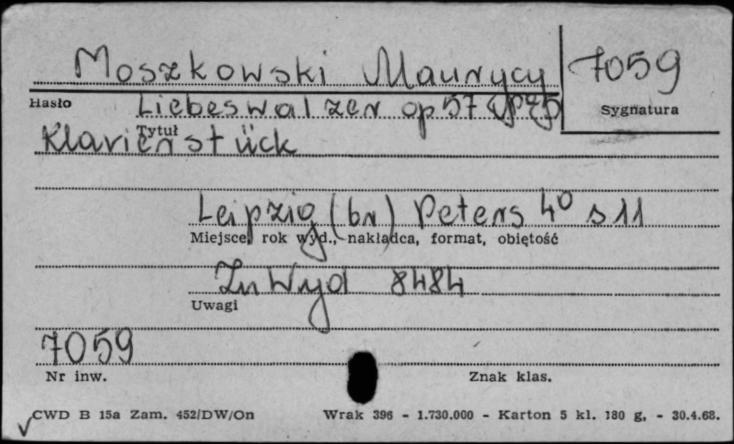 Moszkowski Maurycy 7059
Hasło Liebeswalzer op 57 Sygnatura
Tytuł
Klavierstück
Leipzig (br) Peters 4° s 11
Miejsce, rok wyd., nakładca, format, objętość
Zn Wyd 8484
Uwagi
7059
Nr inw. Znak klas.
CWD B 15a Zam. 452/DW/On Wrak 396 - 1.730.000 - Karton 5 kl. 180 g. - 30.4.68.